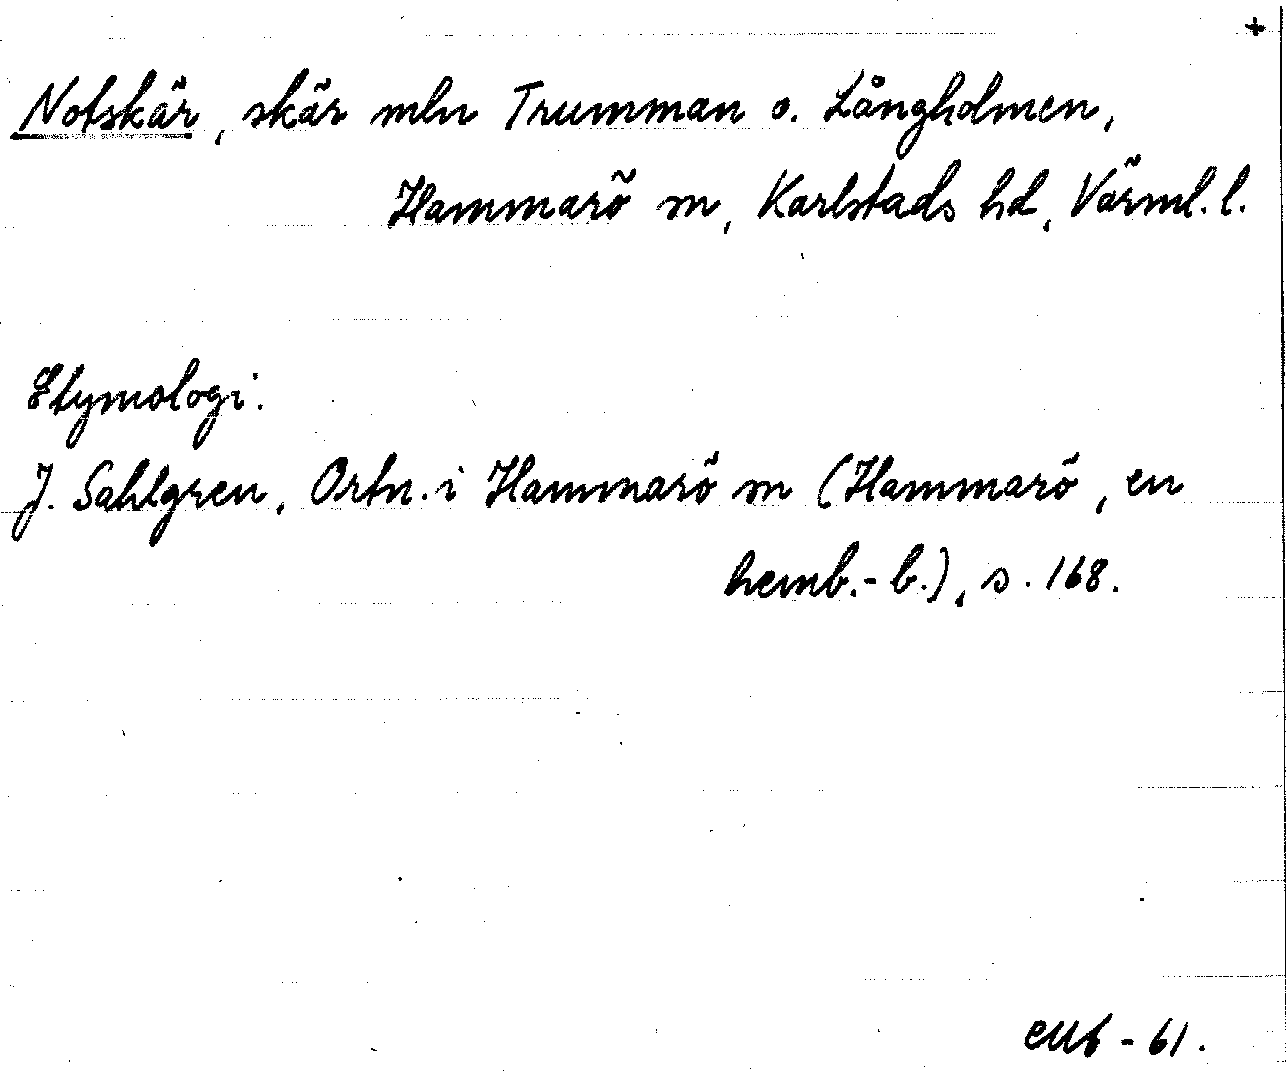 +
Notskär, skär mln Trumman o. Långholmen,
Hammarö sn, Karlstads hd, Värml. l.
Etymologi:
J. Sahlgren, Ortn. i Hammarö sn (Hammarö, en
hemb.-b.), s. 168.
- 61.